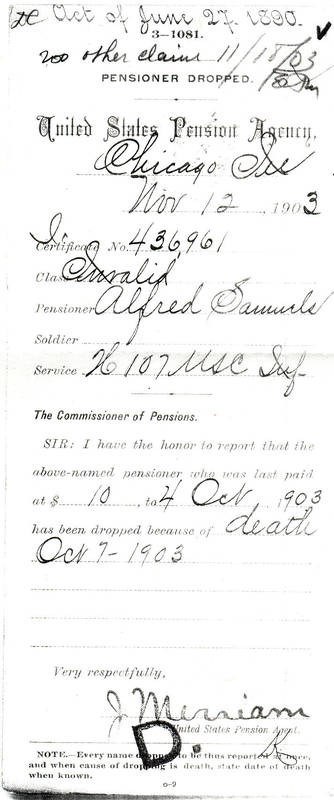 Act of June 27. 1890.
3-1081.
No other claim 11/18/03
PENSIONER DROPPED.
United States Pension Agency,
Chicago Ill
Nov 12, 1903
Certificate No. 436961
Class Invalid
Pensioner Alfred Samuels
Soldier
Service H 107 USC Inf
The Commissioner of Pensions.
SIR: I have the honor to report that the
above-named pensioner who was last paid
at $ 10, to 4 Oct, 1903
has been dropped because of death
Oct 7-1903
Very respectfully,
J Merriam
United States Pension Agent.
D.
NOTE.—Every name dropped to be thus reported at once,
and when cause of dropping is death, state date of death
when known.
o-9